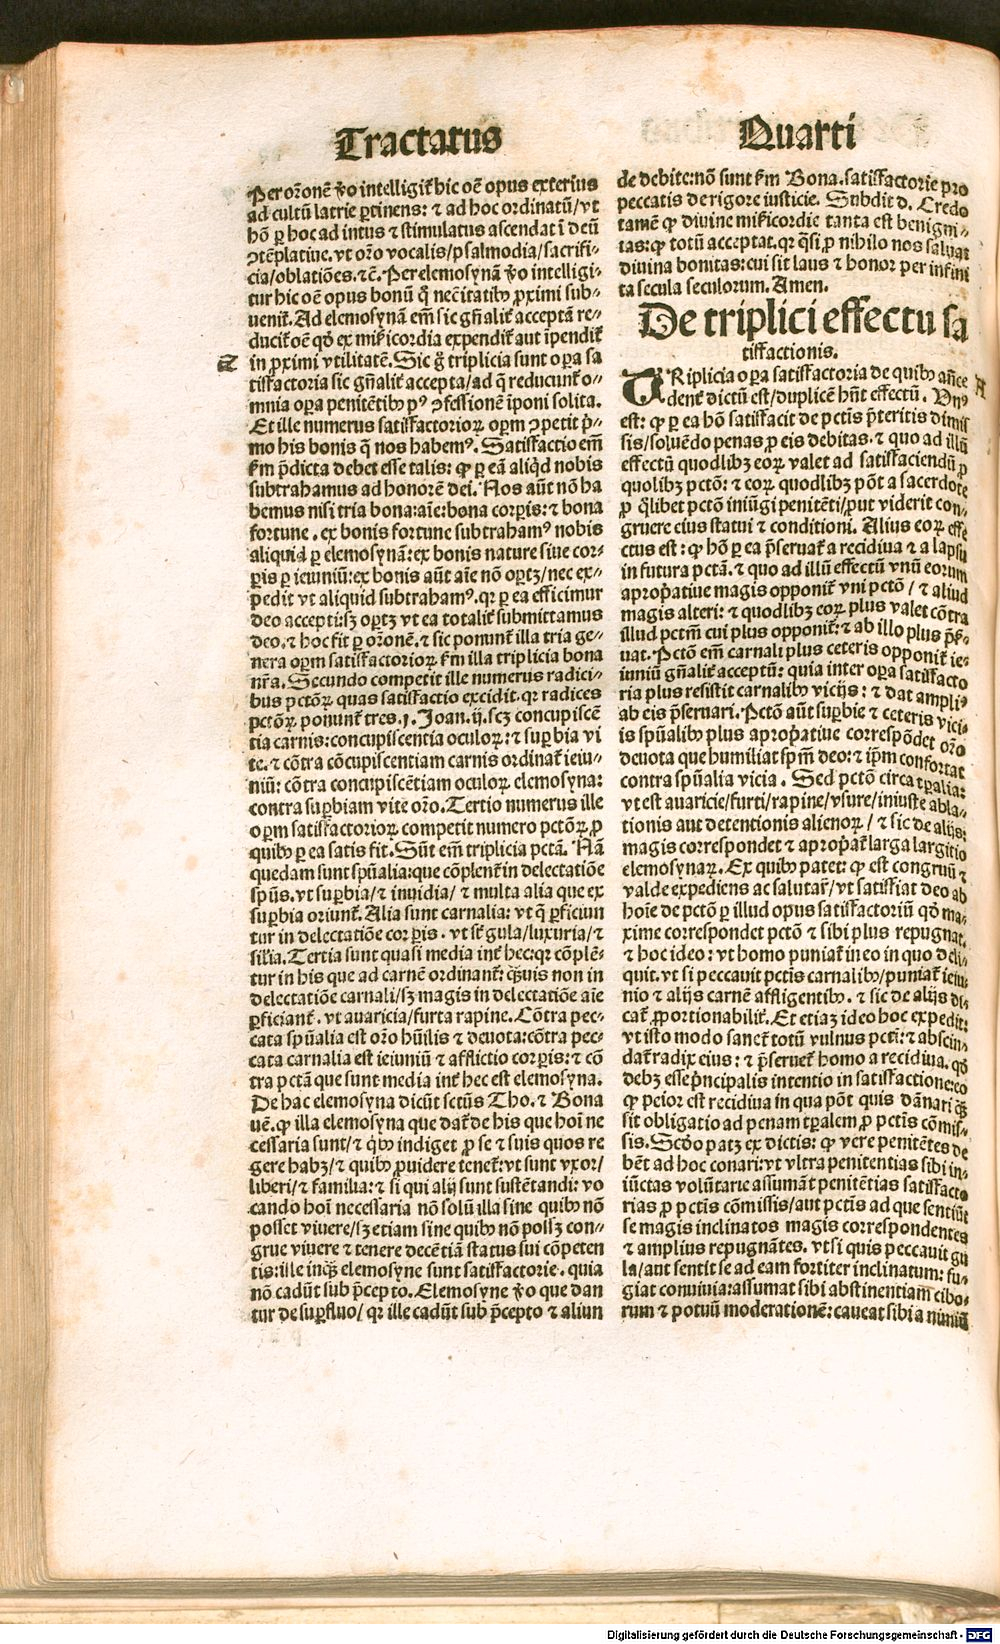 Tractatus
Quarti
Per or̃onẽ ꝟo intelligit̃ hic oẽ opus exterius
ad cultũ latrie ꝑtinens: ⁊ ad hoc ordinatũ/vt
hõ ꝑ hoc ad intus ⁊ stimulatus ascendat ĩ deũ
ꝯtẽplatiue. vt or̃o vocalis/psalmodia/sacrifi⸗
cia/oblatiões.⁊c̃. Per elemosynã ꝟo intelligi⸗
tur hic oẽ opus bonũ qḋ nec̃itatibꝰ ꝓximi sub⸗
uenit̃. Ad elemosynã em̃ sic gñalit̃ acceptã re⸗
ducit̃ oẽ qḋ ex mĩcordia expendit̃ aut ĩpendit̃
Z in ꝓximi vtilitatẽ. Sic g̃ triplicia sunt oꝑa sa
tisfactoria sic gñalit̃ accepta/ad q̃ reducunt̃ o⸗
mnia oꝑa penitẽtibꝰ pꝰ ꝯfessionẽ ĩponi solita.
Et ille numerus satisfactorioꝝ oꝑm ꝯpetit p̃⸗
mo his bonis q̃ nos habemꝰ. Satisfactio em̃
ẜm p̃dicta debet esse talis: ꝙ ꝑ eã aliqd̃ nobis
subtrahamus ad honorẽ dei. Nos aũt nõ ha
bemus nisi tria bona: aĩe: bona corꝑis: ⁊ bona
fortune. ex bonis fortune subtrahamꝰ nobis
aliquid ꝑ elemosynã: ex bonis nature siue cor⸗
ꝑis ꝑ ieiuniũ: ex bonis aũt aĩe nõ oꝑtꝫ/nec ex⸗
pedit vt aliquid subtrahamꝰ. qꝛ ꝑ ea efficimur
deo accepti: sꝫ oꝑtꝫ vt ea totalit̃ submittamus
deo. ⁊ hoc fit ꝑ or̃onẽ. ⁊ sic ponunt̃ illa tria ge⸗
nera oꝑm satisfactorioꝝ ẜm illa triplicia bona
nr̃a. Secundo competit ille numerus radici⸗
bus pctõꝝ quas satisfactio excidit. qꝛ radices
pctõꝝ ponunt̃ tres. ı. Joan. ij. scꝫ concupiscẽ
tia carnis: concupiscentia oculoꝝ: ⁊ suꝑbia vi
te. ⁊ cõtra cõcupiscentiam carnis ordinat̃ ieiu⸗
niũ: cõtra concupiscẽtiam oculoꝝ elemosyna:
contra suꝑbiam vite or̃o. Tertio numerus ille
oꝑm satisfactorioꝝ competit numero pctõꝝ ꝓ
quibꝰ ꝑ ea satis fit. Sũt em̃ triplicia pctã. Nã
quedam sunt spũalia: que cõplent̃ in delectatiõe
spũs. vt suꝑbia/⁊ inuidia/⁊ multa alia que ex
suꝑbia oriunt̃. Alia sunt carnalia: vt q̃ ꝑficiun
tur in delectatiõe corꝑis. vt sũt gula/luxuria/⁊
siĩa. Tertia sunt quasi media int̃ hec: qꝛ cõplẽ⸗
tur in his que ad carnẽ ordinant̃: qᷓuis non in
delectatiõe carnali/sꝫ magis in delectatiõe aĩe
ꝑficiant̃. vt auaricia/furta rapine. Cõtra pec⸗
cata spũalia est or̃o hũilis ⁊ deuota: cõtra pec⸗
cata carnalia est ieiuniũ ⁊ afflictio corꝑis: ⁊ cõ
tra pctã que sunt media int̃ hec est elemosyna.
De hac elemosyna dicũt sctũs Tho. ⁊ Bona
uẽ. ꝙ illa elemosyna que dat̃ de his que hoĩ ne
cessaria sunt/⁊ qĩbꝰ indiget ꝓ se ⁊ suis quos re
gere habꝫ/⁊ quibꝰ ꝓuidere tenet̃: vt sunt vxor/
liberi/⁊ familia: ⁊ si qui alij sunt sustẽtandi: vo
cando hoĩ necessaria nõ solũ illa sine quibꝰ nõ
posset viuere/sꝫ etiam sine quibꝰ nõ possꝫ con⸗
grue viuere ⁊ tenere decẽtiã status sui cõpeten
tis: ille inqᷓꝫ elemosyne sunt satisfactorie. quia
nõ cadũt sub p̃cepto. Elemosyne ꝟo que dan
tur de suꝑfluo/ qꝛ ille cadũt sub p̃cepto ⁊ aliun
de debite: nõ sunt ẜm Bona. satisfactorie pro
peccatis de rigore iusticie. Subdit d. Credo
tamẽ ꝙ diuine mĩcordie tanta est benigni⸗
tas: ꝙ totũ acceptat. qꝛ q̃si ꝓ nihilo nos saluat
diuina bonitas: cui sit laus ⁊ honor per infini
ta secula seculorum. Amen.
De triplici effectu sa
tisfactionis.
TRiplicia oꝑa satisfactoria de quibꝰ añce A
dent̃ dictũ est/duplicẽ hñt effectũ. Vnꝰ
est: ꝙ ꝑ ea hõ satisfacit de pctis p̃teritis dimis
sis/soluẽdo penas ꝓ eis debitas. ⁊ quo ad illũ
effectũ quodlibꝫ eoꝝ valet ad satisfaciendũ ꝓ
quolibꝫ pctõ: ⁊ eoꝝ quodlibꝫ põt a sacerdote
ꝓ q̃libet pctõ iniũgi penitẽti/ꝓut viderit con⸗
gruere eius statui ⁊ conditioni. Alius eoꝝ effe
ctus est: ꝙ hõ ꝑ ea p̃seruat̃ a recidiua ⁊ a lapsu
in futura pctã. ⁊ quo ad illũ effectũ vnũ eorum
aprop̃atiue magis opponit̃ vni pctõ/ ⁊ aliud
magis alteri: ⁊ quodlibꝫ eoꝝ plus valet cõtra
illud pctm̃ cui plus opponit̃: ⁊ ab illo plus p̃ẜ⸗
uat. Pctõ em̃ carnali plus ceteris opponit̃ ie⸗
iuniũ gñalit̃ acceptũ: quia inter oꝑa satisfacto
ria plus resistit carnalibꝰ vicijs: ⁊ dat ampliꝰ
ab eis p̃seruari. Pctõ aũt suꝑbie ⁊ ceteris vicij
is spũalibꝰ plus aprop̃atiue correspõdet or̃o
deuota que humiliat spm̃ deo: ⁊ ip̃m confortat
contra spũalia vicia. Sed pctõ circa tꝑalia:
vt est auaricie/furti/rapine/vsure/iniuste abla⸗
tionis aut detentionis alienoꝝ/ ⁊ sic de alijs:
magis correspondet ⁊ aprop̃at̃ larga largitio
elemosynaꝝ. Ex quibꝰ patet: ꝙ est congruũ ⁊
valde expediens ac salutar̃/vt satisfiat deo ab
hoĩe de pctõ ꝑ illud opus satisfactoriũ qḋ ma⸗
xime correspondet pctõ ⁊ sibi plus repugnat.
⁊ hoc ideo: vt homo puniat̃ in eo in quo deli⸗
quit. vt si peccauit pctis carnalibꝰ/puniat̃ ieiu⸗
nio ⁊ alijs carnẽ affligentibꝰ. ⁊ sic de alijs di⸗
cat̃ ꝓportionabilit̃. Et etiaꝫ ideo hoc expedit:
vt isto modo sanet̃ totũ vulnus pcti: ⁊ abscin⸗
dat̃ radix eius: ⁊ p̃seruet̃ homo a recidiua. qḋ
debꝫ esse p̃ncipalis intentio in satisfactione: eo
ꝙ peior est recidiua in qua põt quis dãnari qᷓꝫ
sit obligatio ad penam tꝑalem ꝓ pctis cõmis⸗
sis. Scḋo patꝫ ex dictis: ꝙ vere penitẽtes de
bẽt ad hoc conari: vt vltra penitentias sibi in⸗
iũctas volũtarie assumãt penitẽtias satisfacto
rias ꝓ pctis cõmissis/aut pctis ad que sentiũt
se magis inclinatos magis correspondentes
⁊ amplius repugnãtes. vt si quis peccauit gu
la/aut sentit se ad eam fortiter inclinatum: fu⸗
giat conuiuia: assumat sibi abstinentiam cibo⸗
rum ⁊ potuũ moderationẽ: caueat sibi a nimiũ
Digitalisierung gefördert durch die Deutsche Forschungsgemeinschaft - DFG